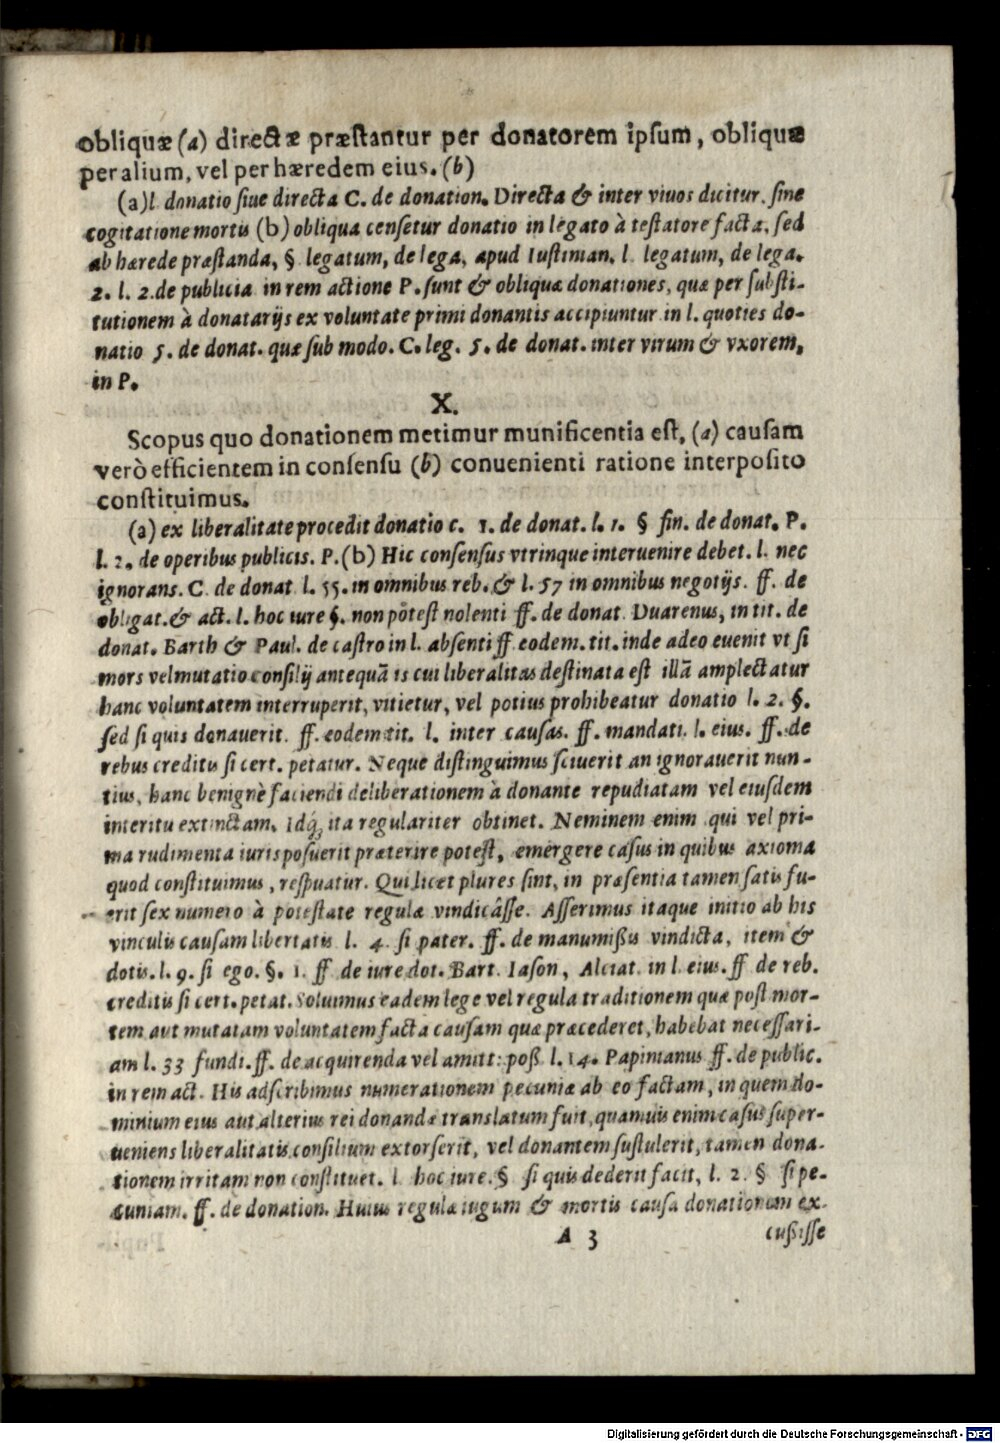 obliquæ (a) directæ præstantur per donatorem ipsum, obliquæ
per alium, vel per hæredem eius. (b)
(a) l donatio siue directa C. de donation. Directa & inter viuos dicitur. sine
cogitatione mortis (b) obliqua censetur donatio in legato à testatore facta, sed
ab hærede præstanda, § legatum, de lega, apud Iustinian. l. legatum, de lega.
2. l. 2. de publicia in rem actione P. sunt & obliquæ donationes, quæ per substi-
tutionem à donatarijs ex voluntate primi donantis accipiuntur in l. quoties do-
natio 5. de donat. quæ sub modo. C. leg. 5. de donat. inter virum & vxorem,
in P.
X.
Scopus quo donationem metimur munificentia est, (a) causam
verò efficientem in consensu (b) conuenienti ratione interposito
constituimus.
(a) ex liberalitate procedit donatio c. 1. de donat. l. 1. § fin. de donat. P.
l. 2. de operibus publicis. P. (b) Hic consensus vtrinque interuenire debet. l. nec
ignorans. C. de donat l. 55. in omnibus reb. & l. 57 in omnibus negotijs. ff. de
obligat. & act. l. hoc iure §. non pōtest nolenti ff. de donat. Duarenus, in tit. de
donat. Barth & Paul. de castro in l. absenti ff eodem. tit. inde adeo euenit vt si
mors vel mutatio consilij antequā is cui liberalitas destinata est illā amplectatur
hanc voluntatem interruperit, vitietur, vel potius prohibeatur donatio l. 2. §.
sed si quis donauerit. ff. eodem tit. l. inter causas. ff. mandati. l. eius. ff. de
rebus creditis si cert. petatur. Neque distinguimus sciuerit an ignorauerit nun-
tius, hanc benignè faciendi deliberationem à donante repudiatam vel eiusdem
interitu extinctam. Idq́; ita regulariter obtinet. Neminem enim qui vel pri-
ma rudimenta iuris posuerit præterire potest, emergere casus in quibus axioma
quod constituimus, respuatur. Qui licet plures sint, in præsentia tamen satis fu-
erit sex numero à potestate regulæ vindicâsse. Asserimus itaque initio ab his
vinculis causam libertatis l. 4. si pater. ff. de manumißis vindicta, item &
dotis. l. 9. si ego. §. 1. ff de iure dot. Bart. Iason, Alciat. in l eius. ff de reb.
creditis si cert. petat. Soluimus eadem lege vel regula traditionem quæ post mor-
tem aut mutatam voluntatem facta causam quæ præcederet, habebat necessari-
am l. 33 fundi. ff. de acquirenda vel amitt: poß l. 14. Papinianus ff. de public.
in rem act. His adscribimus numerationem pecuniæ ab eo factam, in quem do-
minium eius aut alterius rei donandæ translatum fuit, quamuis enim casus super-
ueniens liberalitatis consilium extorserit, vel donantem sustulerit, tamen dona-
tionem irritam non constituet. l. hoc iure. § si quis dederit facit, l. 2. § si pe-
cuniam. ff. de donation. Huius regulæ iugum & mortis causa donationem ex-
A 3 cußisse
Digitalisierung gefördert durch die Deutsche Forschungsgemeinschaft - DFG